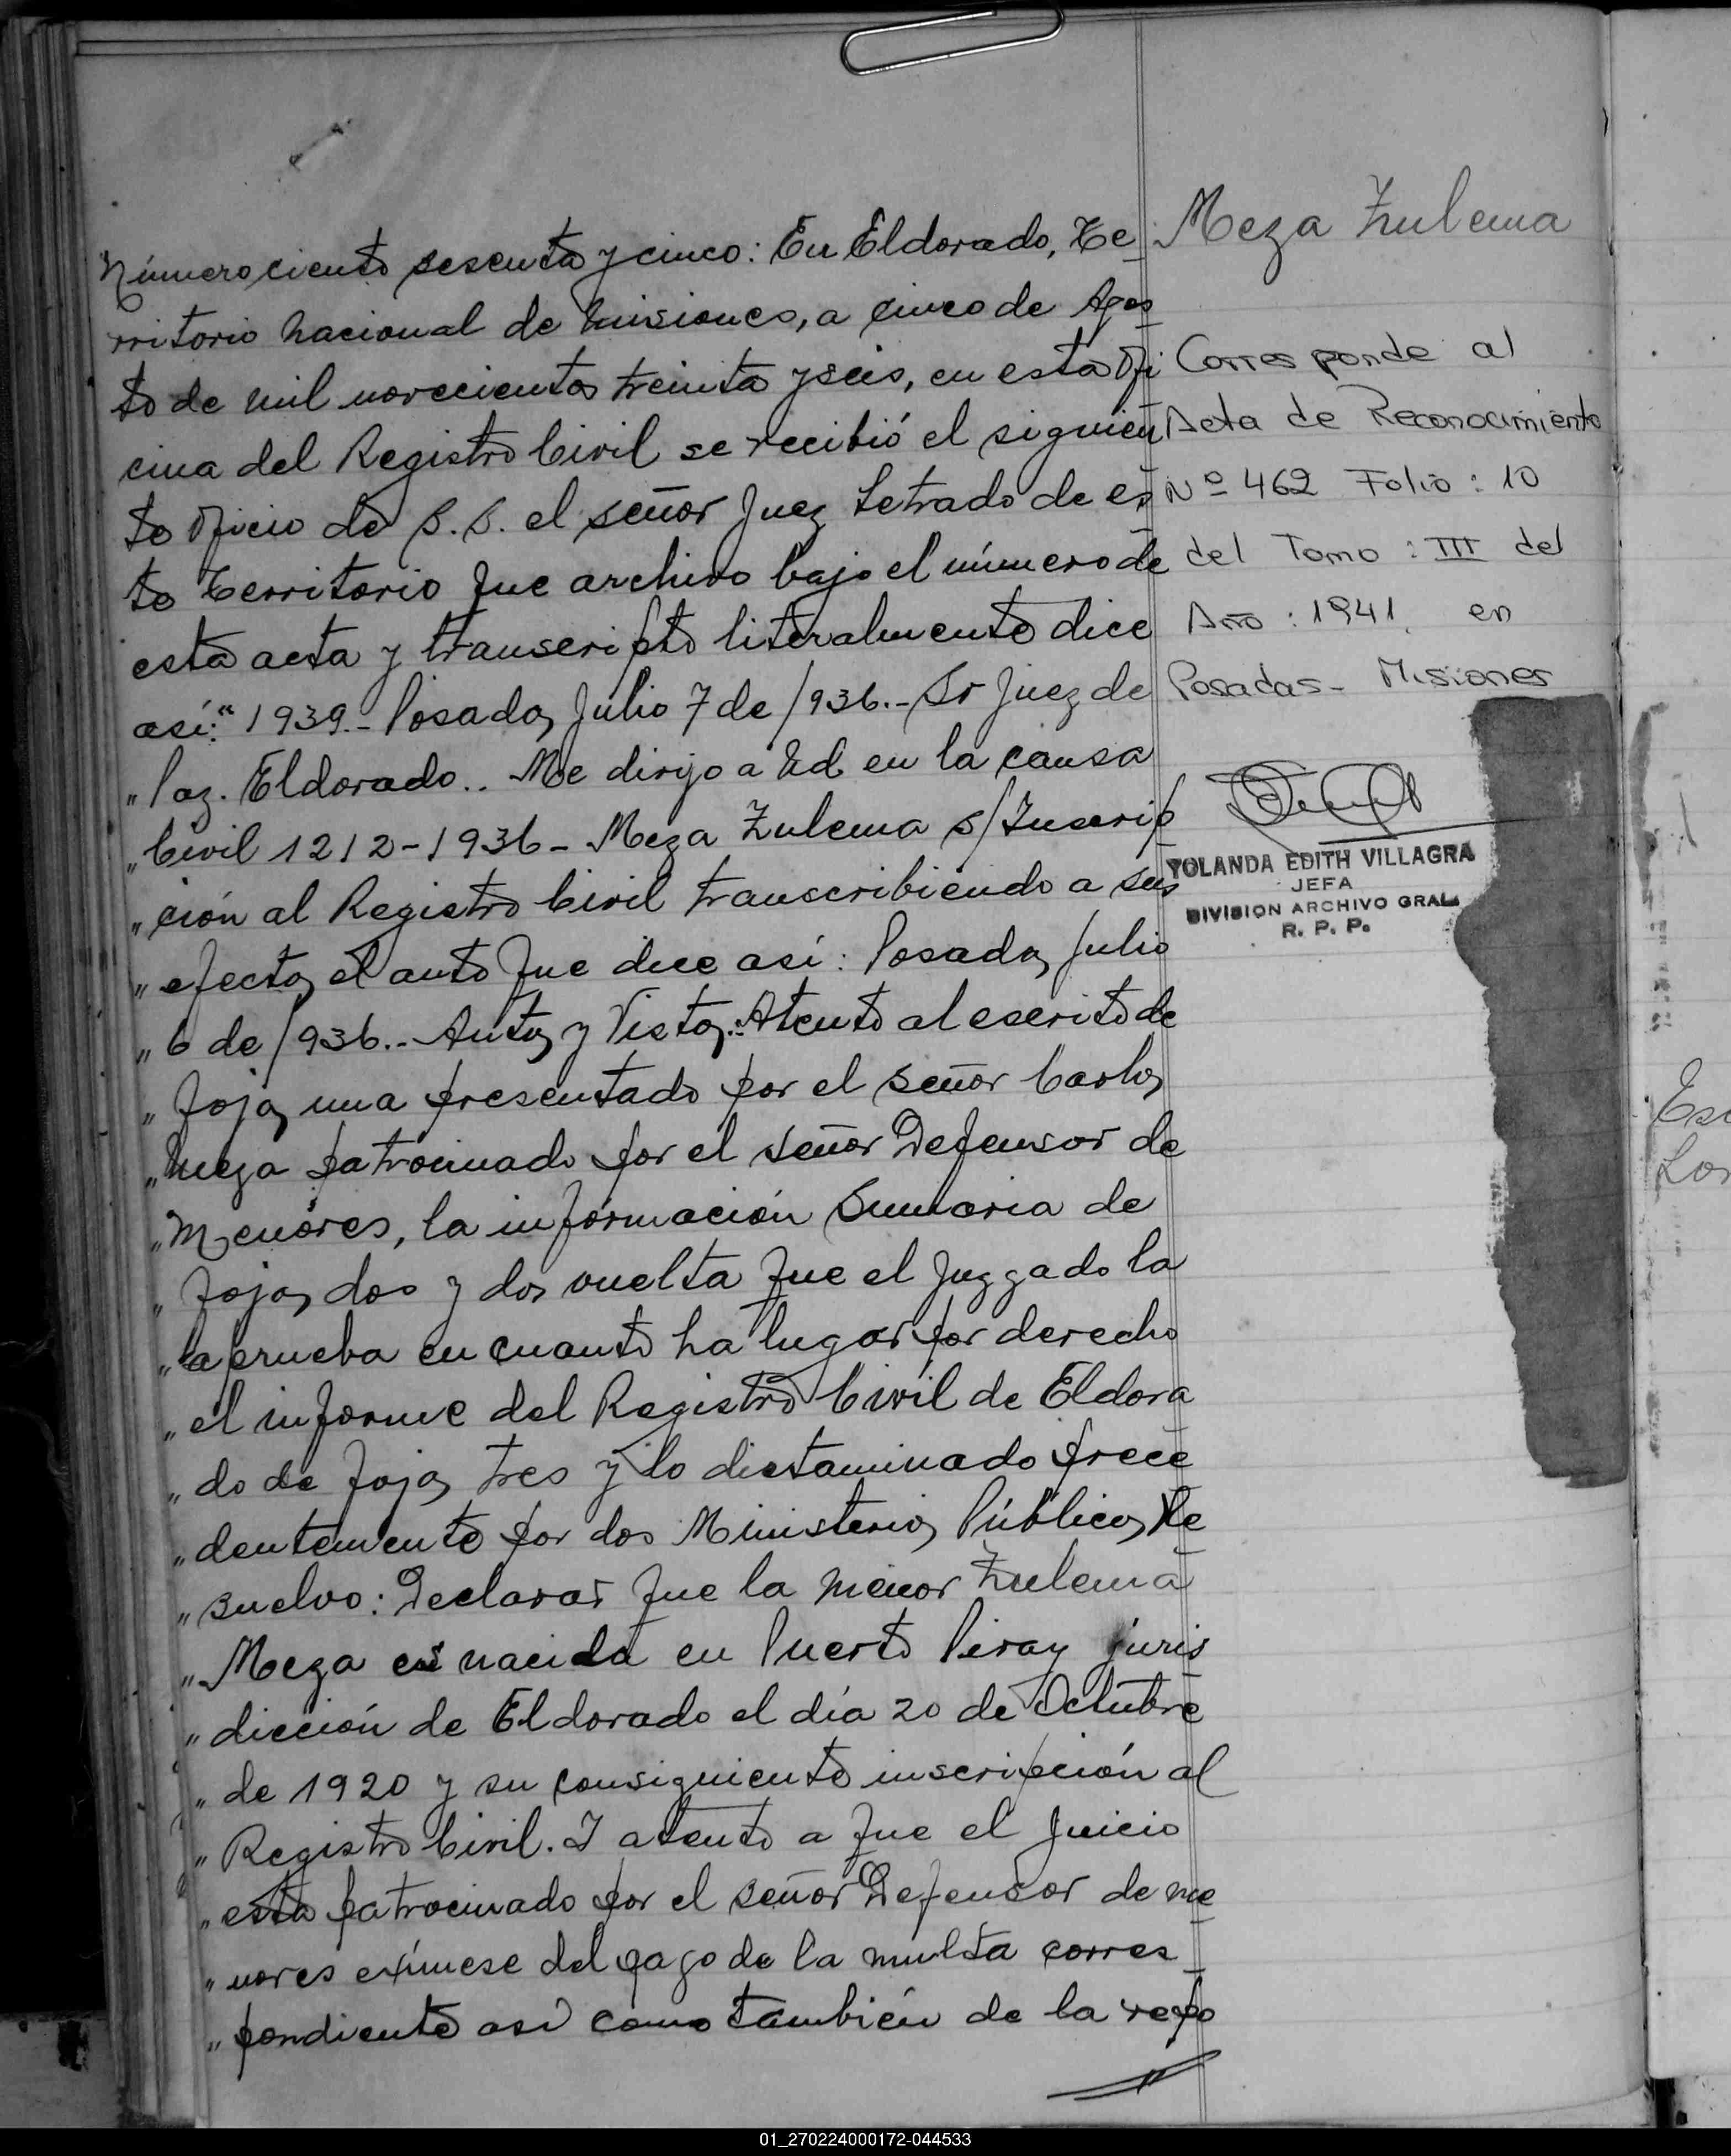 Número ciento sesenta y cinco: En Eldorado, Te
rritorio Nacional de Misiones, a cinco de Agos
to de mil novecientos treinta y seis, en esta Ofi
cina del Registro Civil se recibió el siguien
te oficio de S.S. el señor Juez Letrado de es
te Territorio que archivo bajo el número de
esta acta y transcripto literalmente dice
así:" 1939.- Posadas, Julio 7 de 1936.- Sr Juez de
" Paz. Eldorado.. Me dirijo a Ud. en la causa
" Civil 1212-1936- Meza Zulema s/Inscrip
" ción al Registro Civil transcribiendo a sus
" efectos el auto que dice así: Posadas, Julio
" 6 de 1936.- Autos y Vistos: Atento al escrito de
" fojas una presentado por el señor Carlos
" Meza patrocinado por el señor Defensor de
" Menores, la información sumaria de
" fojas dos y dos vuelta que el Juzgado la
" aprueba en cuanto ha lugar por derecho
" el informe del Registro Civil de Eldora
" do de fojas tres y lo dictaminado prece
" dentemente por dos Ministerios Públicos, Re
" suelvo: Declarar que la menor Zulema
" Meza es nacida en Puerto Piray juris
" dicción de Eldorado el día 20 de Octubre
" de 1920 y su consiguiente inscripción al
" Registro Civil. I atento a que el Juicio
" esta patrocinado por el señor Defensor de me
" nores exímese del pago de la multa corres
" pondiente así como también de la repo
Meza Zulema
Corresponde al
Acta de Reconocimiento
Nº 462 Folio: 10
del Tomo: III del
Año: 1941. en
Posadas- Misiones
YOLANDA EDITH VILLAGRA
JEFA
DIVISION ARCHIVO GRAL.
R. P. P.
01_270224000172-044533